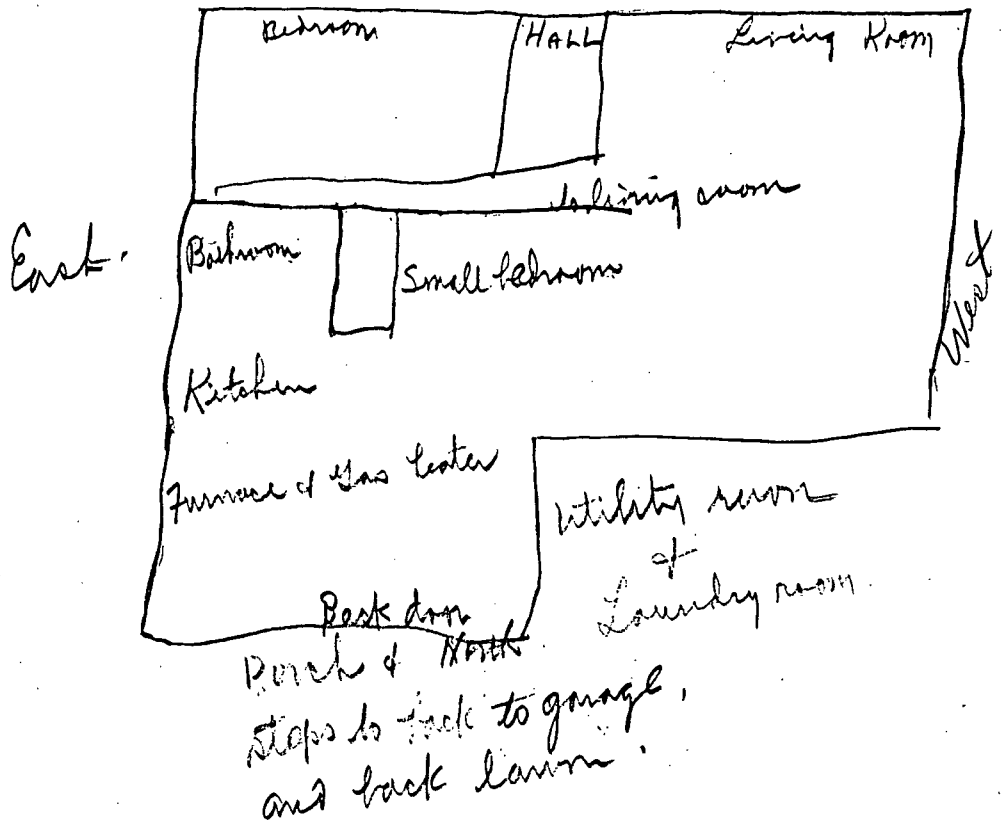 Bedroom HALL Living Room
to living room
East.
Bathroom
Small bedroom
West
Kitchen
Furnace & Gas heater
Utility room
&
Laundry room
Back door
Porch & North
steps to back to garage,
and back lawn.